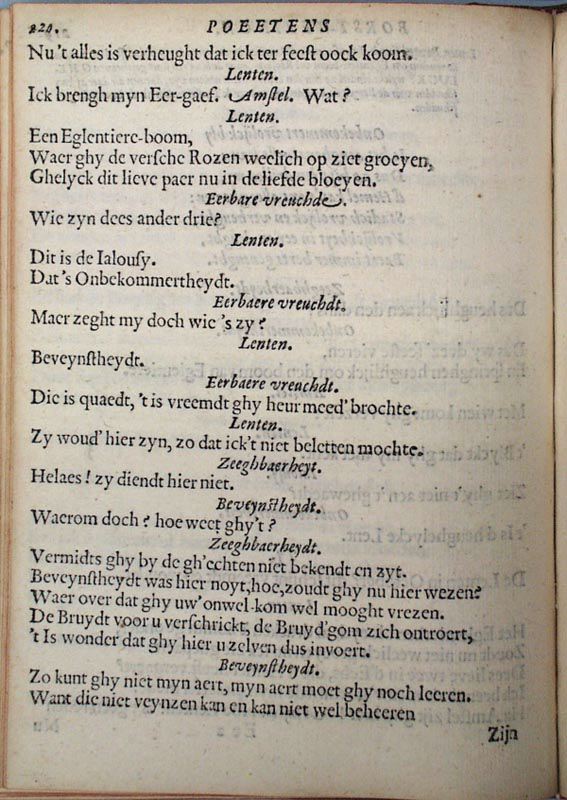 224. POEETENS
Nu 't alles is verheught dat ick ter feest oock koom.
Lenten.
Ick brengh myn Eer-gaef. Amstel. Wat?
Lenten.
Een Eglentiere-boom,
Waer ghy de versche Rozen weelich op ziet groeyen,
Ghelyck dit lieve paer nu in de liefde bloeyen.
Eerbare vreuchde.
Wie zyn dees ander drie?
Lenten.
Dit is de Ialousy.
Dat's Onbekommertheydt.
Eerbaere vreuchdt.
Maer zeght my doch wie 's zy?
Lenten.
Beveynstheydt.
Eerbaere vreuchdt.
Die is quaedt, 't is vreemdt ghy heur meed' brochte.
Lenten.
Zy woud' hier zyn, zo dat ick't niet beletten mochte.
Zeeghbaerheyt.
Helaes! zy diendt hier niet.
Beveynstheydt.
Waerom doch? hoe weet ghy't?
Zeeghbaerheydt.
Vermidts ghy by de gh'echten niet bekendt en zyt.
Beveynstheydt was hier noyt, hoe, zoudt ghy nu hier wezen?
Waer over dat ghy uw' onwel-kom wel mooght vrezen.
De Bruydt voor u verschrickt, de Bruyd'gom zich ontroert,
't Is wonder dat ghy hier u zelven dus invoert.
Beveynstheydt.
Zo kunt ghy niet myn aert, myn aert moet ghy noch leeren.
Want die niet veynzen kan en kan niet wel beheeren
Zijn